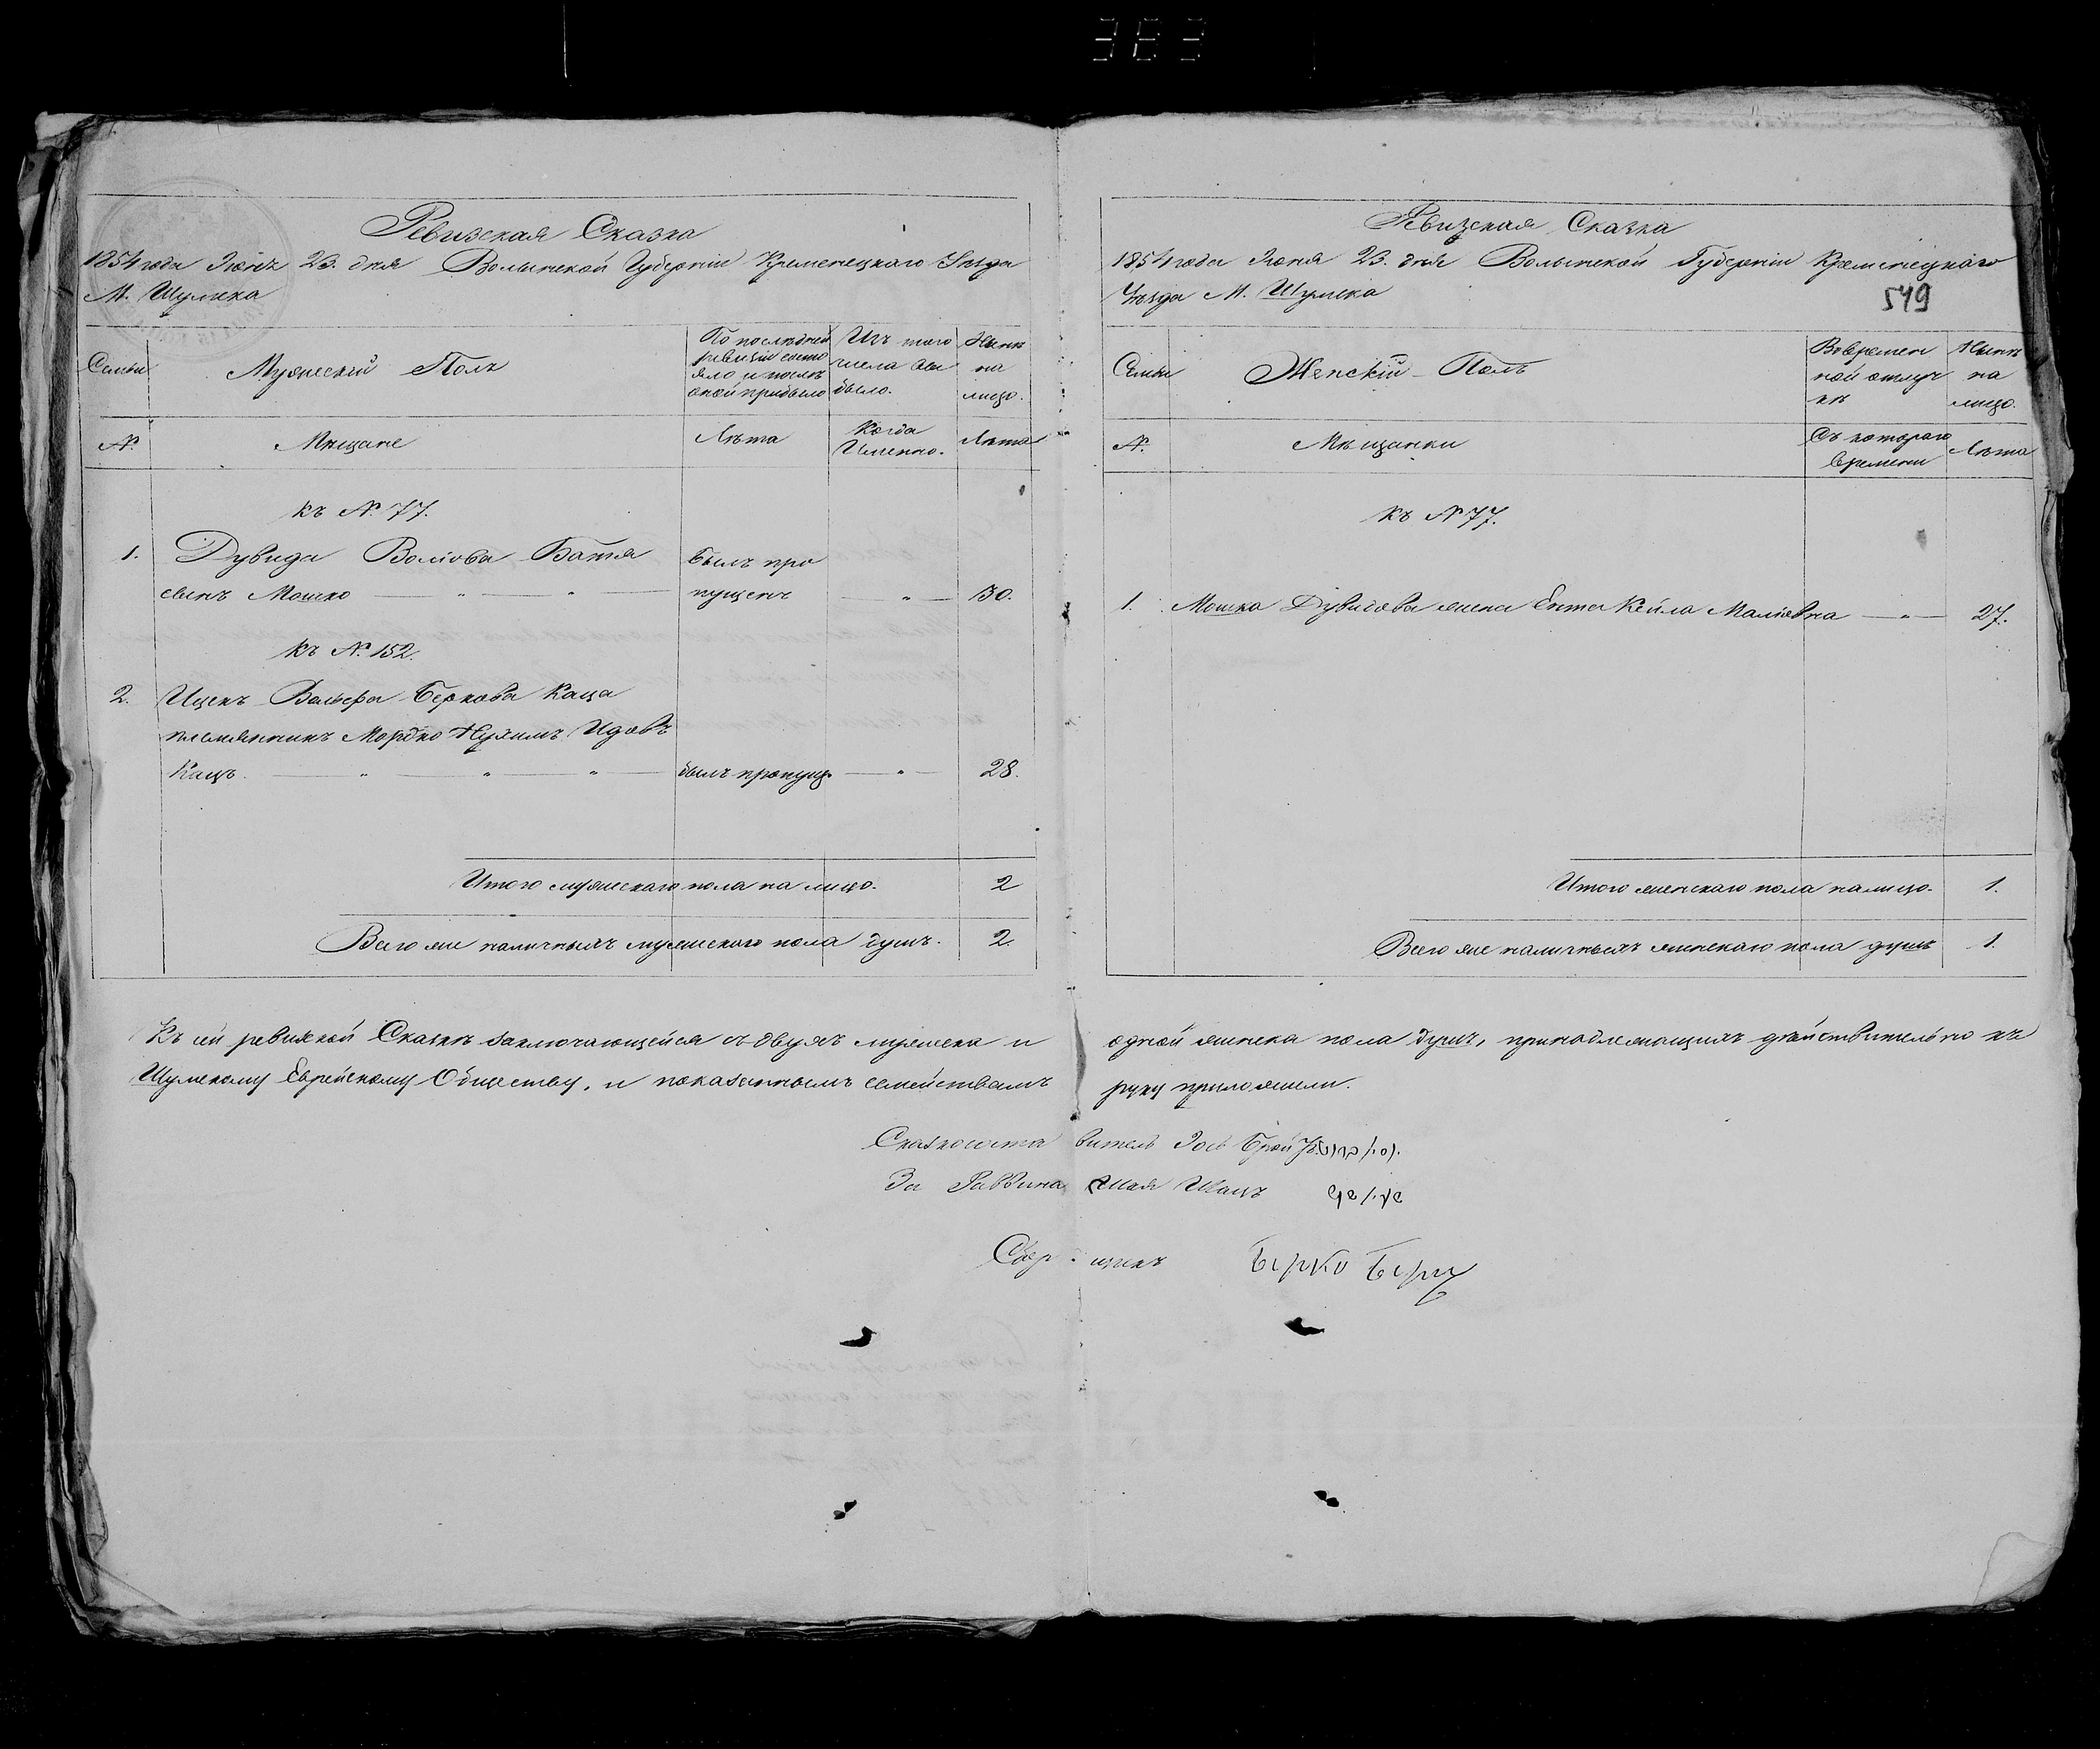 383
Ревизская Сказка
1854 года Іюня 23. дня Волынской Губерніи Кременецкаго Уѣзда
М. Шумска
Семьи
Мужескій Полъ
По послѣдней ревизіи состояло и послѣ оной прибыло
Изъ того числа выбыло.
Нынѣ на лицо.
№.
Мѣщане
Лѣта
Когда Именно.
Лѣта
къ №. 77.
1. Дувида Волиова
сынъ Мошко былъ пропущенъ 30.
къ №. 152.
2. Ицекъ Вольфа Беркова Каца
племянникъ Мордко Нухимъ
Кацъ. былъ пропущ. 28.
Итого мужескаго пола на лицо. 2
Всего же наличныхъ мужескаго пола душъ. 2.
Ревизская Сказка
1854 года Іюня 23. дня Волынской Губерніи Кременецкаго
Уѣзда М. Шумска
549
Семьи
Женскій Полъ
Во временной отлучкѣ
Нынѣ на лицо.
№.
Мѣщанки
Съ котораго времени
Лѣта
Къ № 77.
1. Мошка Дувидова жена Ента Кейла 27.
Итого женскаго пола налицо. 1.
Всего же наличныхъ женскаго пола душъ 1.
Къ сей ревизской Сказкѣ заключающейся въ двухъ мужеска и одной женска пола душъ, принадлежащихъ дѣйствительно къ
Шумскому Еврейскому Обществу, и показаннымъ семействамъ руку приложили.
Сказкосоставитель Іосъ
За Раввина Шая Шацъ
Сборщикъ Берко